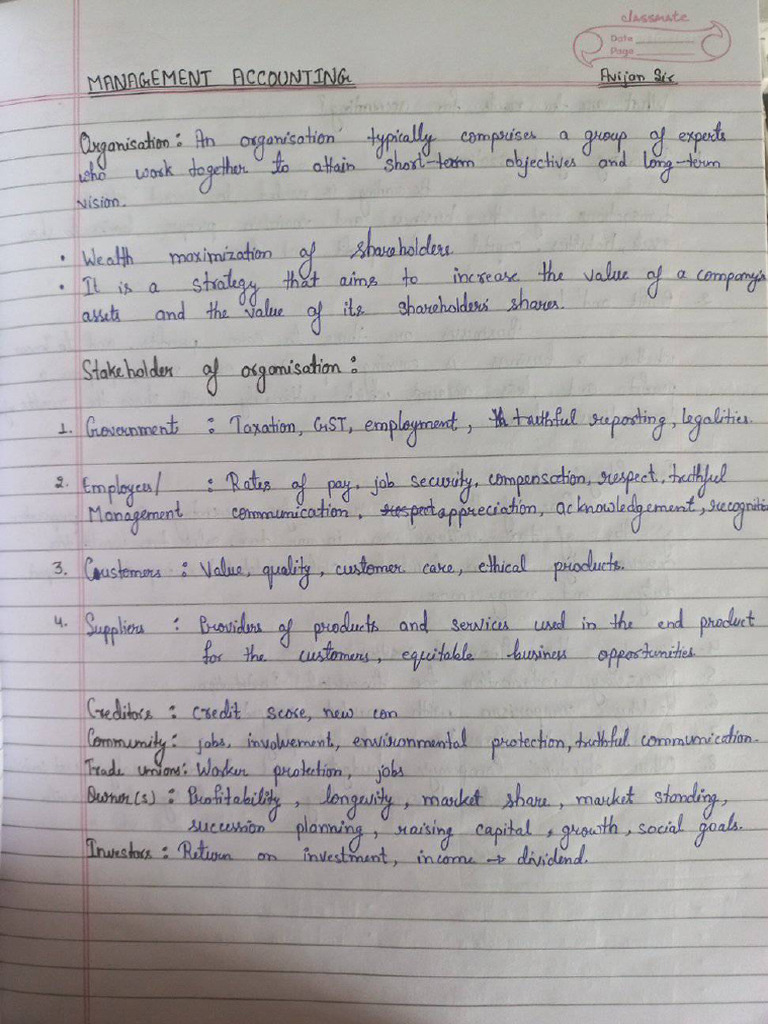 classmate
Date
Page
MANAGEMENT ACCOUNTING
Avijan Sir
Organisation : An organisation typically comprises a group of experts
who work together to attain short-term objectives and long-term
vision.
• Wealth maximization of shareholders.
• It is a strategy that aims to increase the value of a company's
assets and the value of its shareholders' shares.
Stakeholder of organisation :
1. Government : Taxation, GST, employment, truthful reporting, legalities.
2. Employees/ : Rates of pay, job security, compensation, respect, truthful
Management communication, respect appreciation, acknowledgement, recogniti
3. Coustomers : Value, quality, customer care, ethical products.
4. Suppliers : Providers of products and services used in the end product
for the customers, equitable business opportunities.
Creditors : credit score, new con
Community : jobs, involvement, environmental protection, truthful communication.
Trade unions : Worker protection, jobs
Owner(s) : Profitability, longevity, market share, market standing,
succession planning, raising capital, growth, social goals.
Investors : Return on investment, income → dividend.